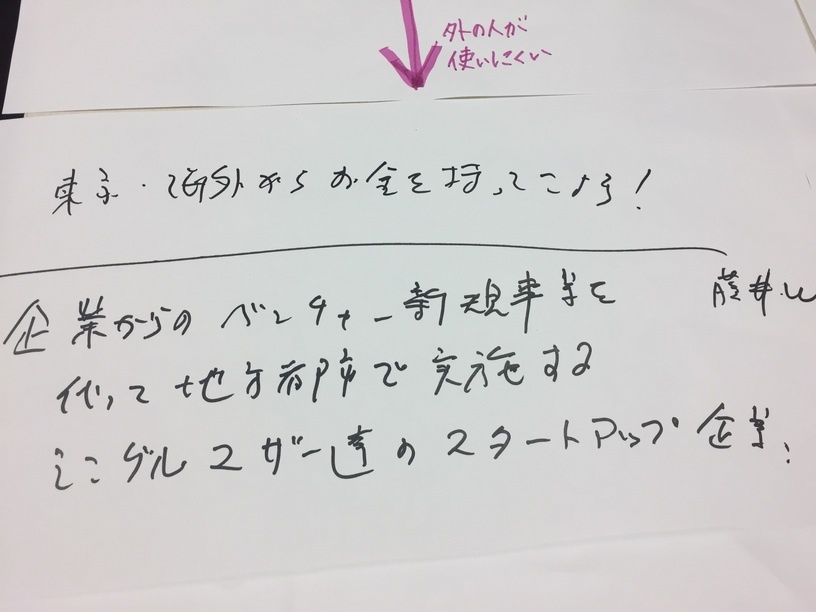 外の人が
使いにくい
東京・海外からお金を持ってこよう!
企業からのベンチャー新規事業を
藤井.
代って地方都市で実施する
シングルマザー達のスタートアップ企業.